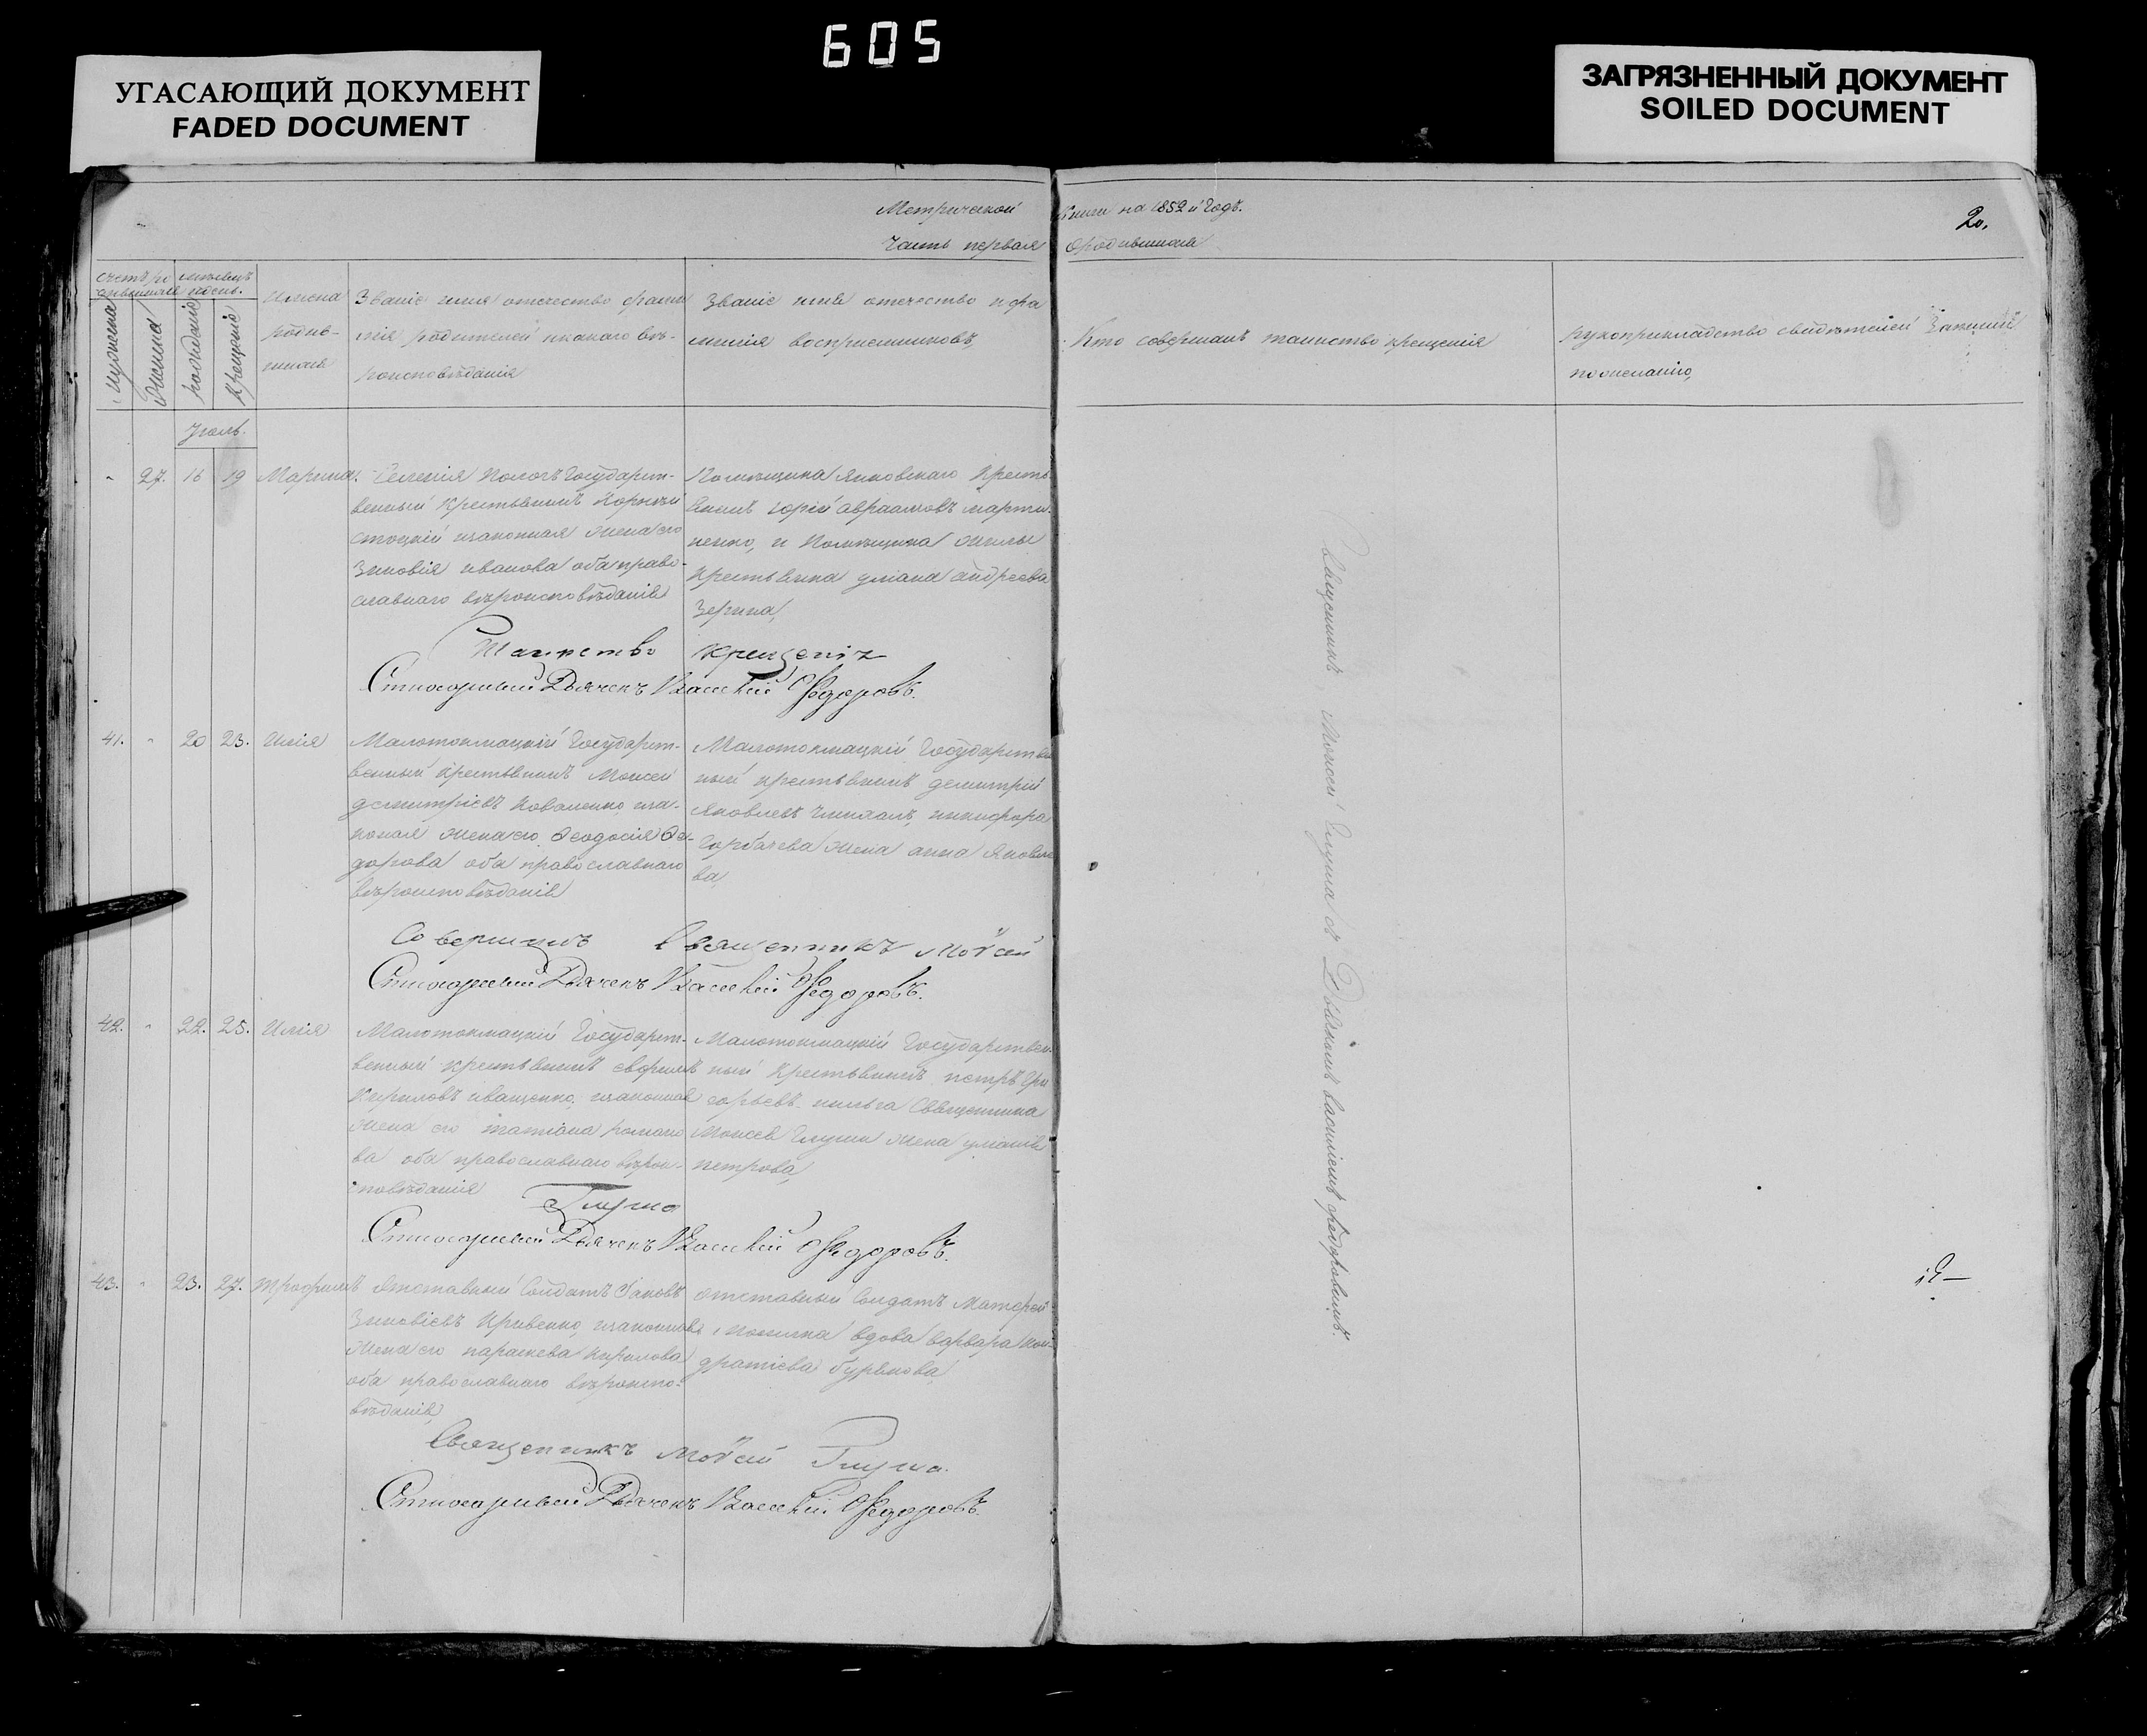 605
УГАСАЮЩИЙ ДОКУМЕНТ
FADED DOCUMENT
ЗАГРЯЗНЕННЫЙ ДОКУМЕНТ
SOILED DOCUMENT
Метрической Книги на 1852й Годъ.
20.
Часть первая Ородившихся
Мужеска
Женска
рождения
Крещение
Имена
родив-
шихся
Званіе имя отечество фами
лія родителей икакаго вѣ-
роисповѣданія
Званіе имя отечество и фа
милія воспріемниковъ,
Кто совершалъ таинство крещенія
рукоприкладство свидѣтелей Записи
пожеланію,
27. 16 19 Марина.
Селенія Пологъ Государст-
венный Крестьянинъ Корнѣй
изаконная жена его
Зиновія иванова оба право-
славнаго вѣроисповѣданія
Помѣщика Янковскаго Кресть
янинъ юрій авраамовъ марты-
ненко, и Помѣщика
Крестьянка уліана андреева
Таинство крещенія
Дьячекъ Василій Федоровъ.
41. 20 23. Илія
Малотокмацкій Государст-
венный Крестьянинъ Моисей
демитріевъ Коваленко иза-
конная жена его Феодосія Фе-
дорова оба православнаго
вѣроисповѣданія
Малотокмацкій Государствен
ный крестьянинъ демитрій
Яковлевъ никифора
Горбачева жена анна Яковле
ва,
Совершилъ Священникъ Моѵсей
Дьячекъ Василій Федоровъ.
42. 22. 25. Илія
Малотокмацкій Государст-
венный крестьянинъ ефримъ
Кириловъ иващенко, изаконная
жена его татіана романо
ва оба православнаго вѣрои-
сповѣданія
Малотокмацкій Государствен-
ный Крестьянинъ петръ Гри
горьевъ Священника
Моисея Глушка жена уліанія
петрова,
Глушко
Дьячекъ Василій Федоровъ.
43. 23. 27. Трофимъ
Отставный Солдатъ Іаковъ
Зиновіевъ Кривенко, изаконная
жена его параскева Кирилова
оба православнаго вѣроиспо-
вѣданія,
отставный Солдатъ Матфей
вдова варвара Кон-
дратіева бурякова,
Священникъ Моѵсей Глушко.
Дьячекъ Василій Федоровъ.
Священникъ Моисей Глушка съ Дьячкомъ василіемъ федоровымъ.